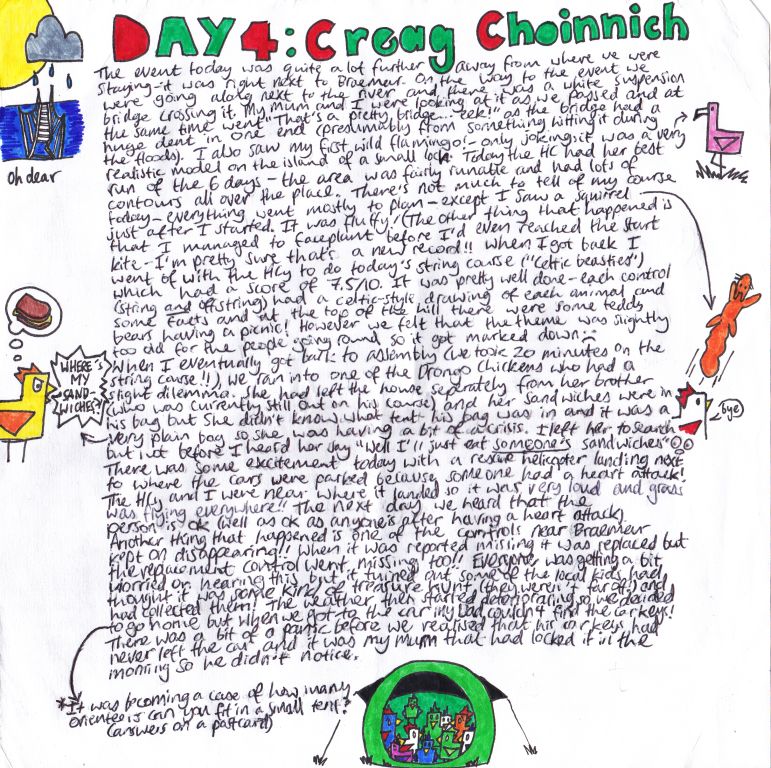 DAY 4: Creag Choinnich
The event today was quite a lot further away from where we were
staying - it was right next to Braemar. On the way to the event we
were going along next to the river and there was a white suspension
bridge crossing it. My mum and I were looking at it as we passed and at
the same time went "That's a pretty bridge... eek!" as the bridge had a
huge dent in one end (presumably from something hitting it during
the floods). I also saw my first wild flamingo! - only joking: it was a very
realistic model on the island of a small loch. Today the HC had her best
run of the 6 days - the area was fairly runable and had lots of
contours all over the place. There's not much to tell of my course
today - everything went mostly to plan - except I saw a squirrel
just after I started. It was fluffy! (The other thing that happened is
that I managed to faceplant before I'd even reached the start
kite - I'm pretty sure that's a new record!! When I got back I
went of with the HCy to do today's string course ("Celtic beasties")
which had a score of 7.5/10. It was pretty well done - each control
(string and offstring) had a celtic-style drawing of each animal and
some facts and at the top of the hill there were some teddy
bears having a picnic! However we felt that the theme was slightly
too old for the people going round so it got marked down :(
When I eventually got back to assembly (we took 20 minutes on the
string course!!), we ran into one of the Drongo Chickens who had a
slight dilemma. She had left the house seperately from her brother
(who was currently still out on his course) and her sandwiches were in
his bag but she didn't know what tent his bag was in and it was a
very plain bag so she was having a bit of a crisis. I left her to search
but not before I heard her say "Well I'll just eat someone's sandwiches"
There was some excitement today with a rescue helicopter landing next
to where the cars were parked because someone had a heart attack!
The HCy and I were near where it landed so it was very loud and grass
was flying everywhere!! The next day we heard that the
person is ok (well as ok as anyone is after having a heart attack)
Another thing that happened is one of the controls near Braemar
kept on disappearing!! When it was reported missing it was replaced but
the replacement control went missing too!! Everyone was getting a bit
worried on hearing this but it turned out some of the local kids had
thought it was some kind of treasure hunt (they weren't far off) and
had collected them! The weather then started deteriorating so we decided
to go home but when we got to the car my dad couldn't find the car keys!
There was a bit of a panic before we realised that his car keys had
never left the car and it was my mum that had locked it in the
morning so he didn't notice.
*It was becoming a case of how many
orienteers can you fit in a small tent?
(answers on a postcard)
oh dear
WHERE'S
MY
SAND-
WICHES?
bye